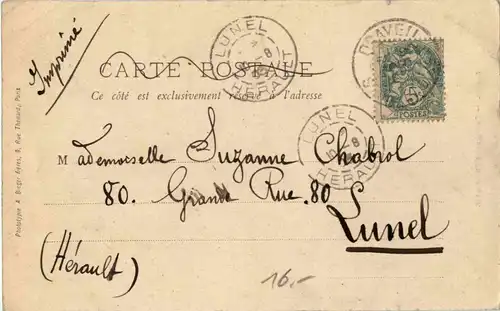 Imprimé
CARTE POSTALE
Ce côté est exclusivement réservé à l'adresse
LUNEL
HÉRAULT
DRAVEIL
POSTES
LUNEL
HÉRAULT
Mademoiselle Suzanne Chabrol
80. Grande Rue. 80
Lunel
(Hérault)
16.-
Phototype A. Breger frères, 9, Rue Thénard, Paris